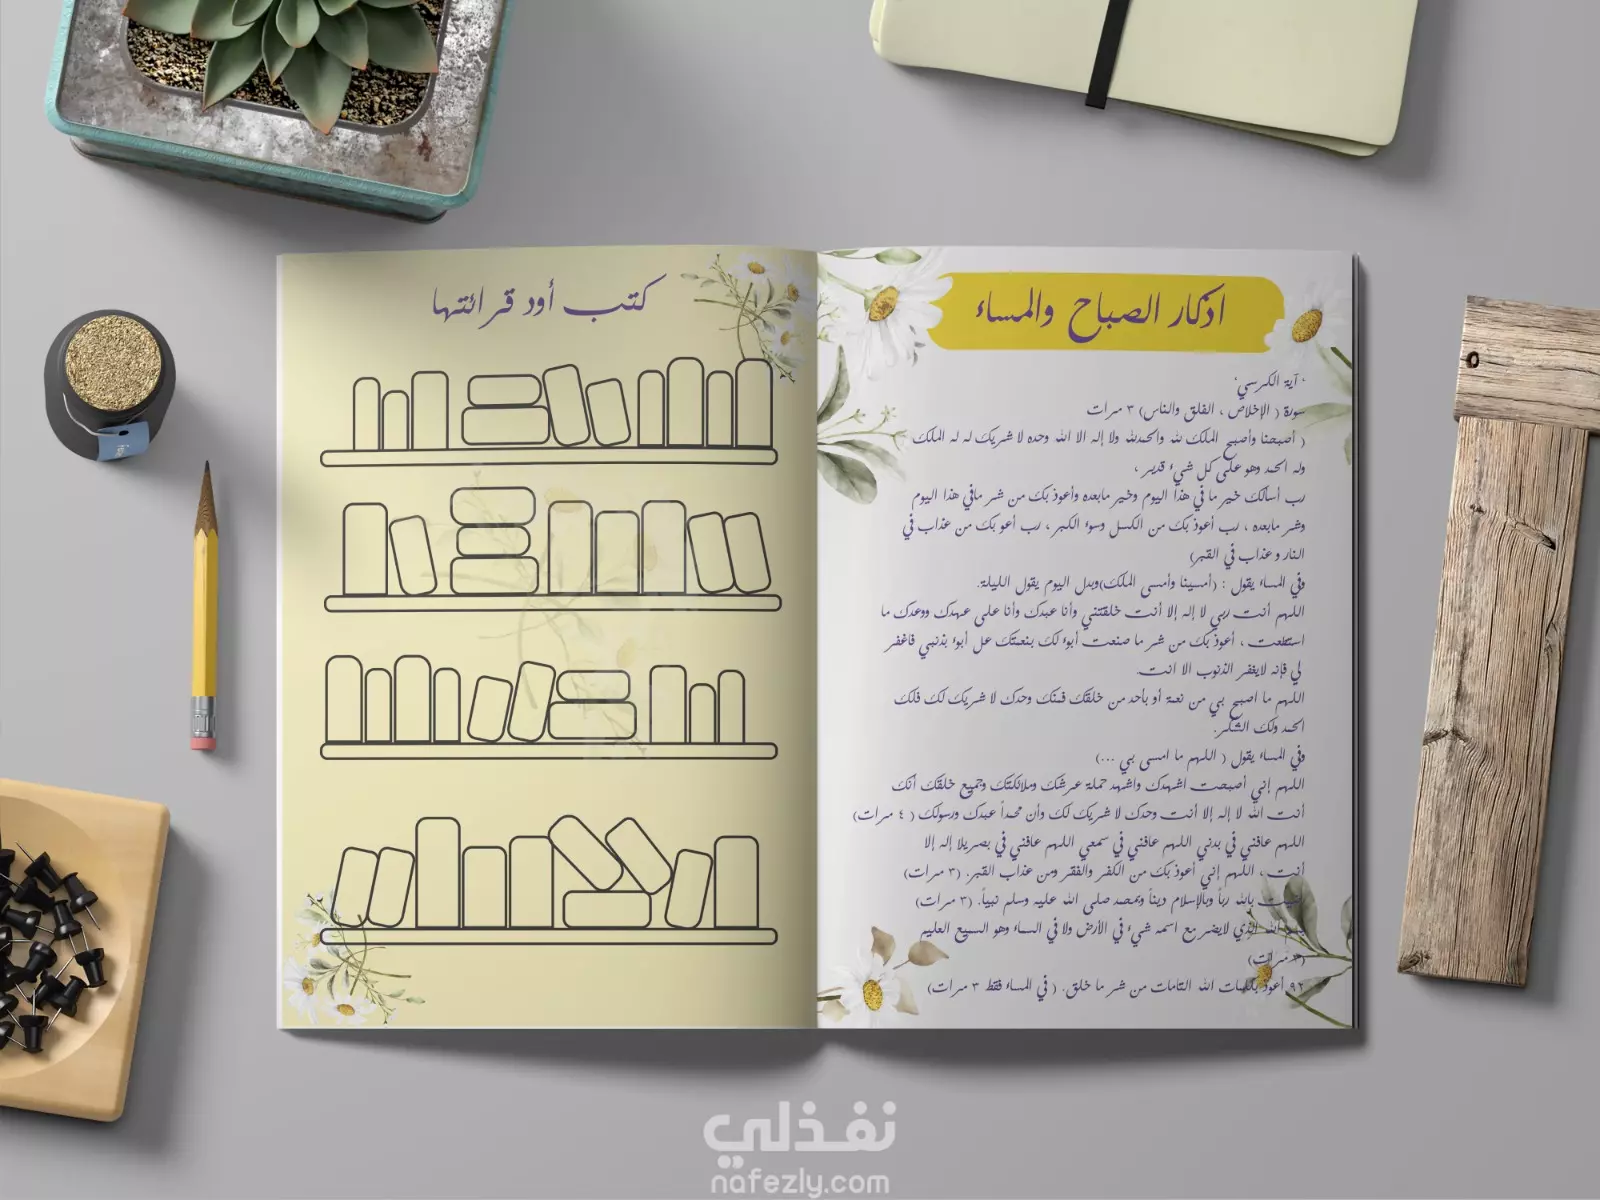 اذكار الصباح والمساء
' آية الكرسي'
سورة ( الإخلاص ، الفلق والناس) ٣ مرات
( أصبحنا وأصبح الملك لله والحمدلله ولا إله الا الله وحده لا شريك له له الملك
وله الحمد وهو على كل شيء قدير ،
رب أسألك خير ما في هذا اليوم وخير مابعده وأعوذ بك من شر مافي هذا اليوم
وشر مابعده ، رب أعوذ بك من الكسل وسوء الكبر ، رب أعو بك من عذاب في
النار و عذاب في القبر)
وفي المساء يقول : (أمسينا وأمسى الملك)وبدل اليوم يقول الليلة.
اللهم أنت ربي لا إله إلا أنت خلقتني وأنا عبدك وأنا على عهدك ووعدك ما
استطعت ، أعوذ بك من شر ما صنعت أبوء لك بنعمتك عل أبوء بذنبي فاغفر
لي فإنه لايغفر الذنوب الا انت.
اللهم ما اصبح بي من نعمة أو بأحد من خلقك فمنك وحدك لا شريك لك فلك
الحمد ولك الشكر.
وفي المساء يقول ( اللهم ما امسى بي ...)
اللهم إني أصبحت اشهدك واشهد حملة عرشك وملائكتك وجميع خلقك أنك
أنت الله لا إله إلا أنت وحدك لا شريك لك وأن محمداً عبدك ورسولك ( ٤ مرات)
اللهم عافني في بدني اللهم عافني في سمعي اللهم عافني في بصريلا إله إلا
أنت ، اللهم إني أعوذ بك من الكفر والفقر ومن عذاب القبر. (٣ مرات)
بالله رباً وبالإسلام ديناً وبمحمد صلى الله عليه وسلم نبياً. (٣ مرات)
الله الذي لايضر مع اسمه شيء في الأرض ولا في السماء وهو السميع العليم
(٣ مرات)
٩٢ أعوذ بكلمات الله التامات من شر ما خلق. ( في المساء فقط ٣ مرات)
كتب أود قرائتها
نفذلي
nafezly.com